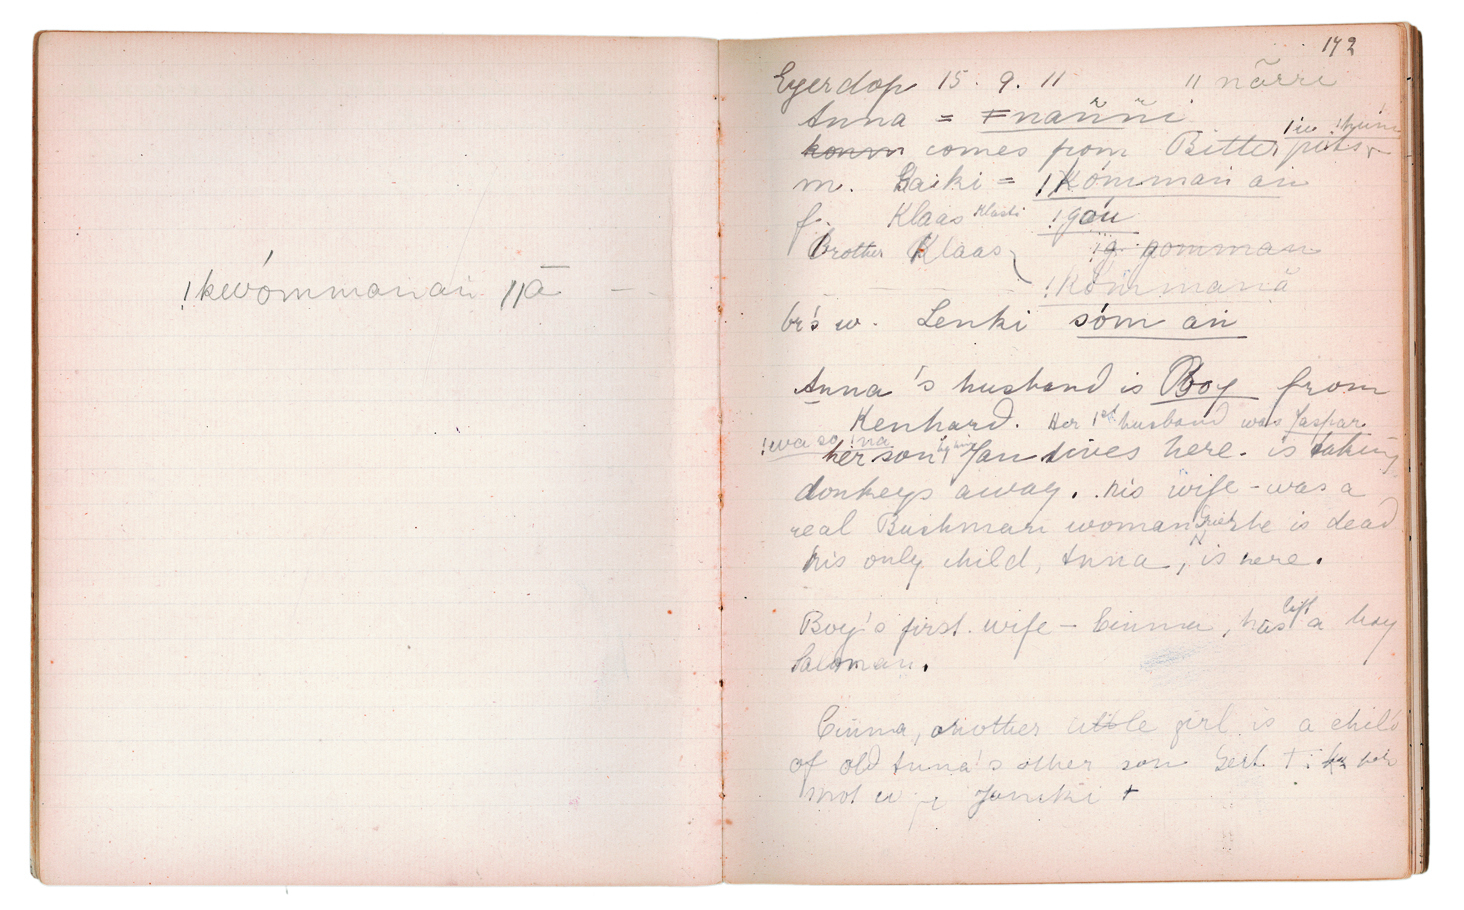 !kwómmanaṅ ǁā
142
Eyerdop 15. 9. 11 ǁ nãrri
Anna = ǂnaňňi
comes from Bitterputs
m. Gaiki = !Kómman an
f. Klaas Klaasi !góu
Brother Klaas !g gomman
!Kommanã
br's w. Lenki sóm an
Anna's husband is Boy from
Kenhard. Her 1st husband was Jaspar
!wa so !na
her son Jan lives here. is taking
donkeys away. his wife - was a
real Bushman woman she is dead
his only child, Anna, is here.
Boy's first wife - Cinna, has left a boy
Saloman.
Cinna, another little girl is a child
of old Anna's other son Gert †
Janiki †